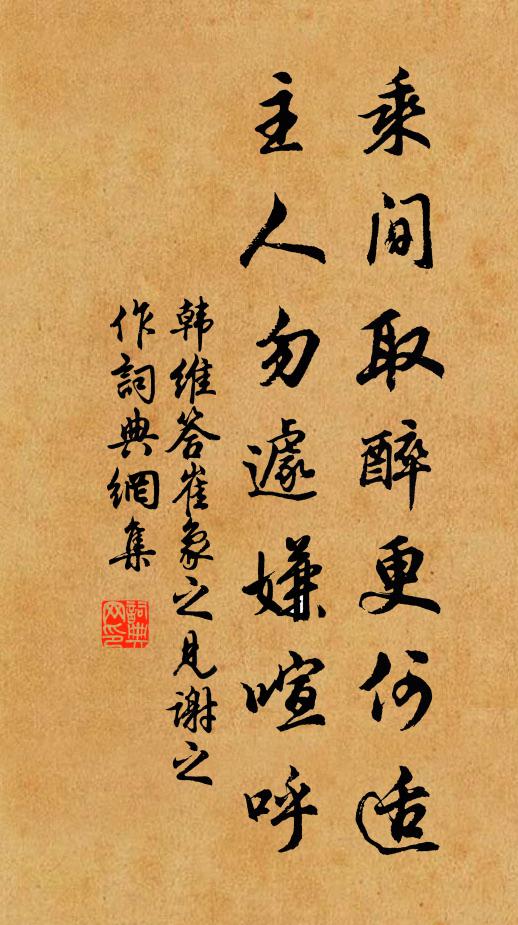 乘间取醉更何适
主人勿遽嫌喧呼
韩维答崔象之见谢之
作詞典網集
詞典网印